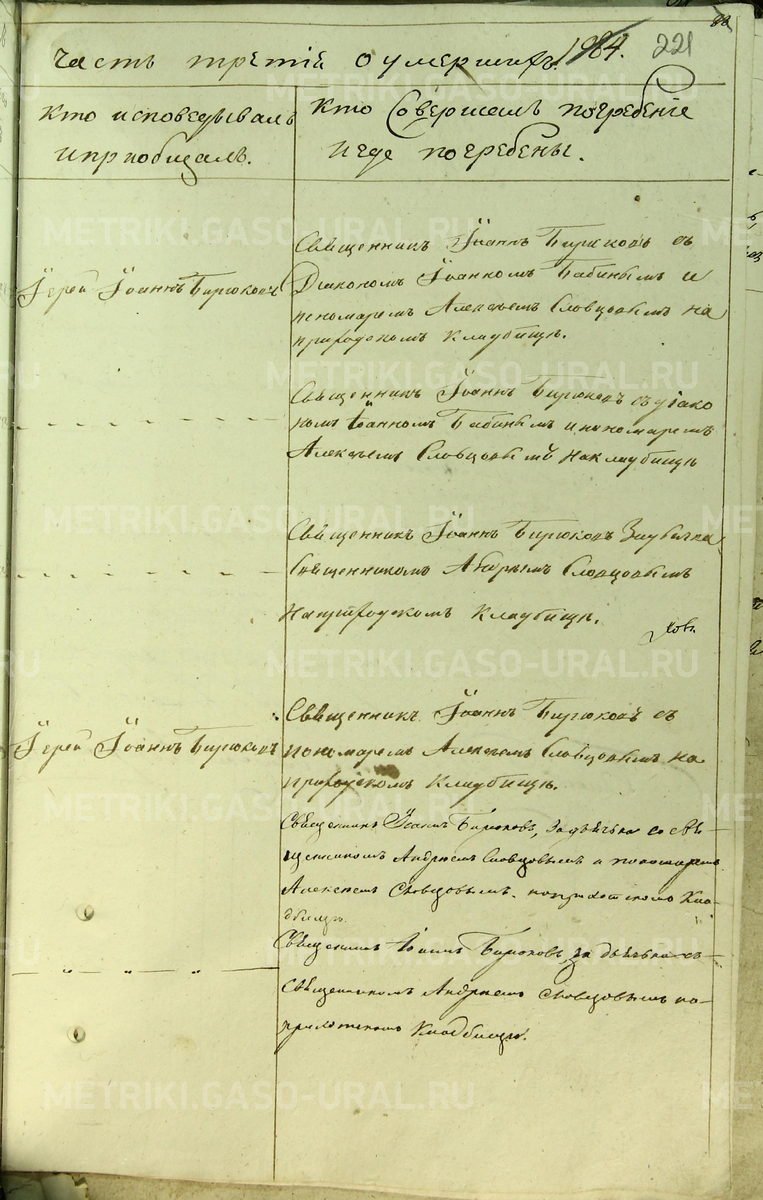 часть третiя о умершихъ. 1884. 221
Кто исповедывалъ
и приобщалъ.
Кто Совершалъ погребенiе
и где погребены.
Iерей Iоаннъ Бирюковъ
Священникъ Iоаннъ Бирюковъ съ
Дiакономъ Iоанномъ Бабинымъ и
пономаремъ Алексѣемъ Словцовымъ на
приходскомъ кладбищѣ.
Священникъ Iоаннъ Бирюковъ съ дiако
номъ Iоанномъ Бабинымъ и пономаремъ
Алексѣемъ Словцовымъ на кладбищѣ
Священникъ Iоаннъ Бирюковъ
Священникомъ Андреемъ Словцовымъ
На приходскомъ кладбищѣ.
Iерей Iоаннъ Бирюковъ
Священникъ Iоаннъ Бирюковъ съ
пономаремъ Алексѣемъ Словцовымъ на
приходскомъ кладбищѣ.
Священникъ Iоаннъ Бирюковъ, за дьячка со свя-
щенникомъ Андреемъ Словцовымъ и пономаремъ
Алексеемъ Словцовымъ. на приходскомъ Кла-
дбищѣ.
Священникъ Iоаннъ Бирюковъ, за дьячка съ
священникомъ Андреемъ Словцовымъ на-
приходскомъ Кладбищѣ.
METRIKI.GASO-URAL.RU